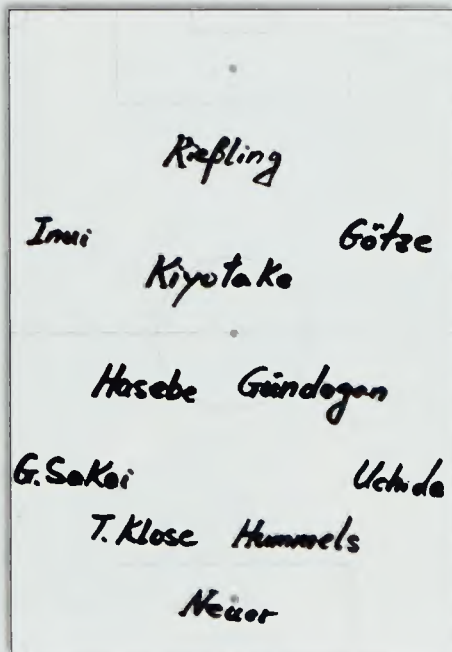 Kießling
Inui Götze
Kiyotake
Hasebe Gündogan
G.Sakai Uchida
T.Klose Hummels
Neuer